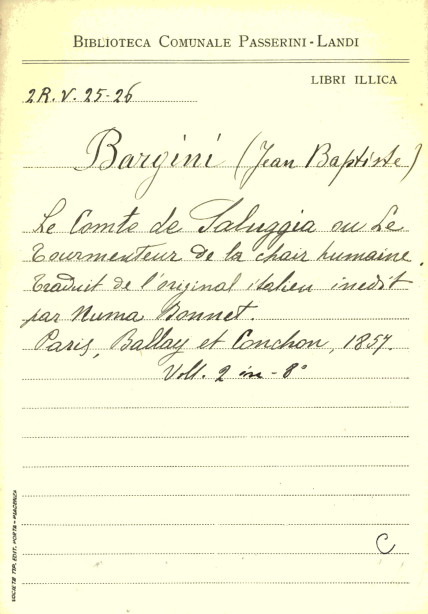 BIBLIOTECA COMUNALE PASSERINI-LANDI
LIBRI ILLICA
2R.V. 25-26
Bargini (Jean Baptiste)
Le Comte de Saluggia ou Le
Tourmenteur de la chair humaine.
Traduit de l'original italien inedit
par Numa Bonnet.
Paris, Ballay et Conchon, 1857.
Voll. 2 in-8°
C
SOCIETÀ TIP. EDIT. PORTA - PIACENZA